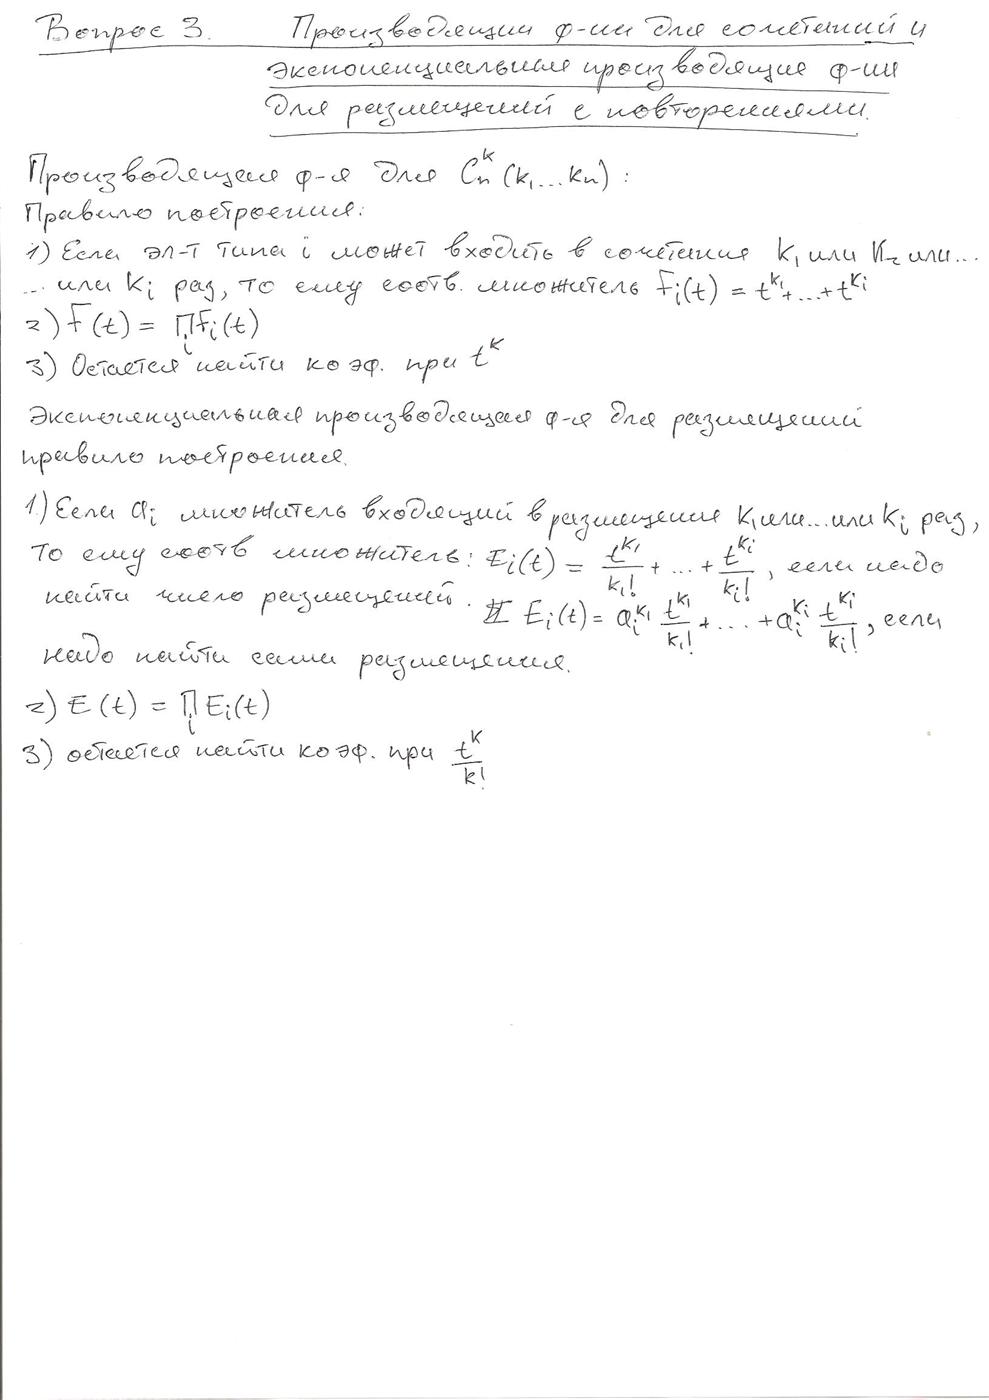 Вопрос 3. Производящии ф-ии для сочетаний и
экспоненциальная производящие ф-ии
для размещений с повторениями.
Производящая ф-я для Cₙᵏ (k₁...kₙ) :
Правило построения:
1) Если эл-т типа i может входить в сочетания k₁ или k₂ или...
... или kᵢ раз, то ему соотв. множитель Fᵢ(t) = t^k₁ + ... + t^kᵢ
2) F(t) = ∏ᵢ Fᵢ(t)
3) Остается найти коэф. при tᵏ
Экспоненциальная производящая ф-я для размещений
правило построения.
1.) Если aᵢ множитель входящий в размещения k₁ или...или kᵢ раз,
то ему соотв множитель: Eᵢ(t) = t^k₁/k₁! + ... + t^kᵢ/kᵢ!, если надо
найти число размещений. Eᵢ(t) = aᵢ^k₁ t^k₁/k₁! + ... + aᵢ^kᵢ t^kᵢ/kᵢ!, если
надо найти сами размещения.
2) E(t) = ∏ᵢ Eᵢ(t)
3) остается найти коэф. при tᵏ/k!